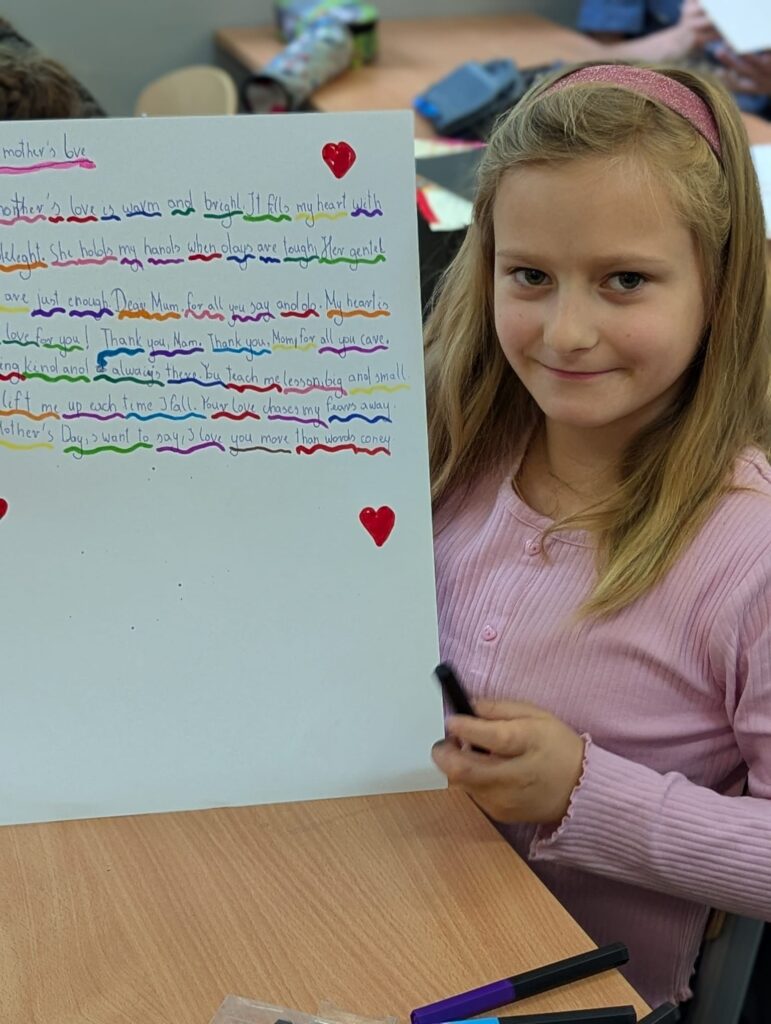 mother's love
mother's love is warm and bright. It fills my heart with
deleght. She holds my hands when days are tough, Her gentel
are just enough. Dear Mum, for all you say and do. My heart is
love for you! Thank you, Mam. Thank you, Mom, for all you cave.
kind and always there. You teach me lesson, big and small.
lift me up each time I fall. Your love chases my fears away.
Mother's Day, I want to say, I love you more than words coney.